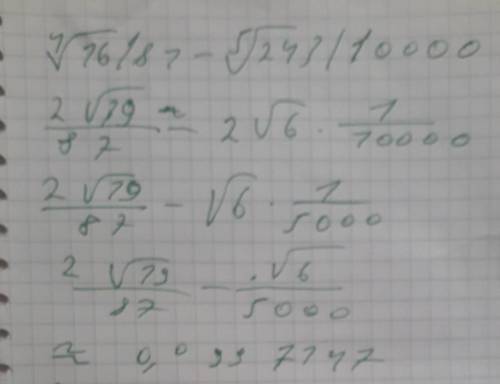 ⁴√76/81 - ⁵√243/10000
2√19/87 - 2√6 · 1/10000
2√19/87 - √6 · 1/5000
2√19/87 - √6/5000
≈ 0,0997147